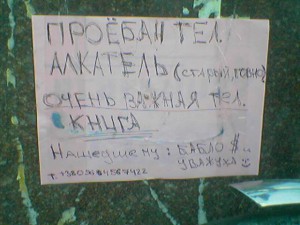 ПРОЁБАЛ ТЕЛ.
АЛКАТЕЛЬ (СТАРЫЙ, ГОВНО)
ОЧЕНЬ ВАЖНАЯ ТЕЛ.
КНИГА
Нашедшему : БАБЛО $..
УВАЖУХА